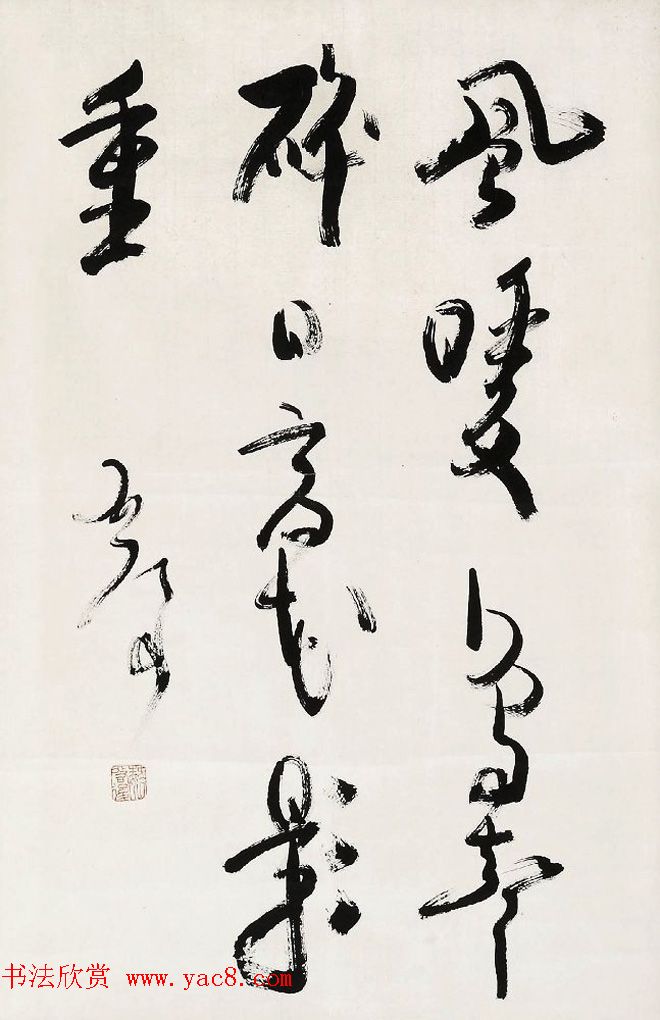 風暖鳥聲
碎日高花影
重
书法欣赏 www.yac8.com